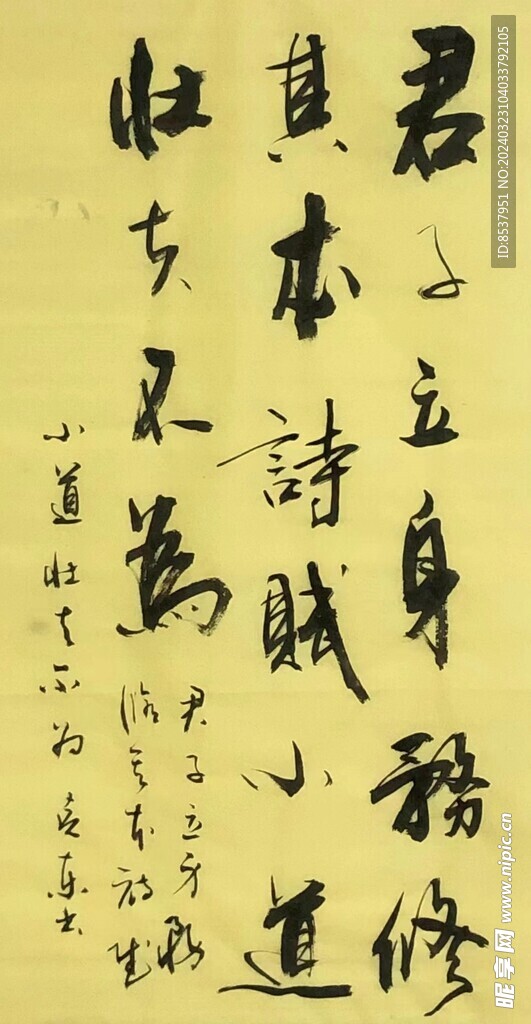 君子立身務修
其本詩賦小道
壯夫不為
君子立身務
修其本詩賦
小道壯夫不为
ID:8537951 NO:20240323104033792105
昵享网 www.nipic.cn